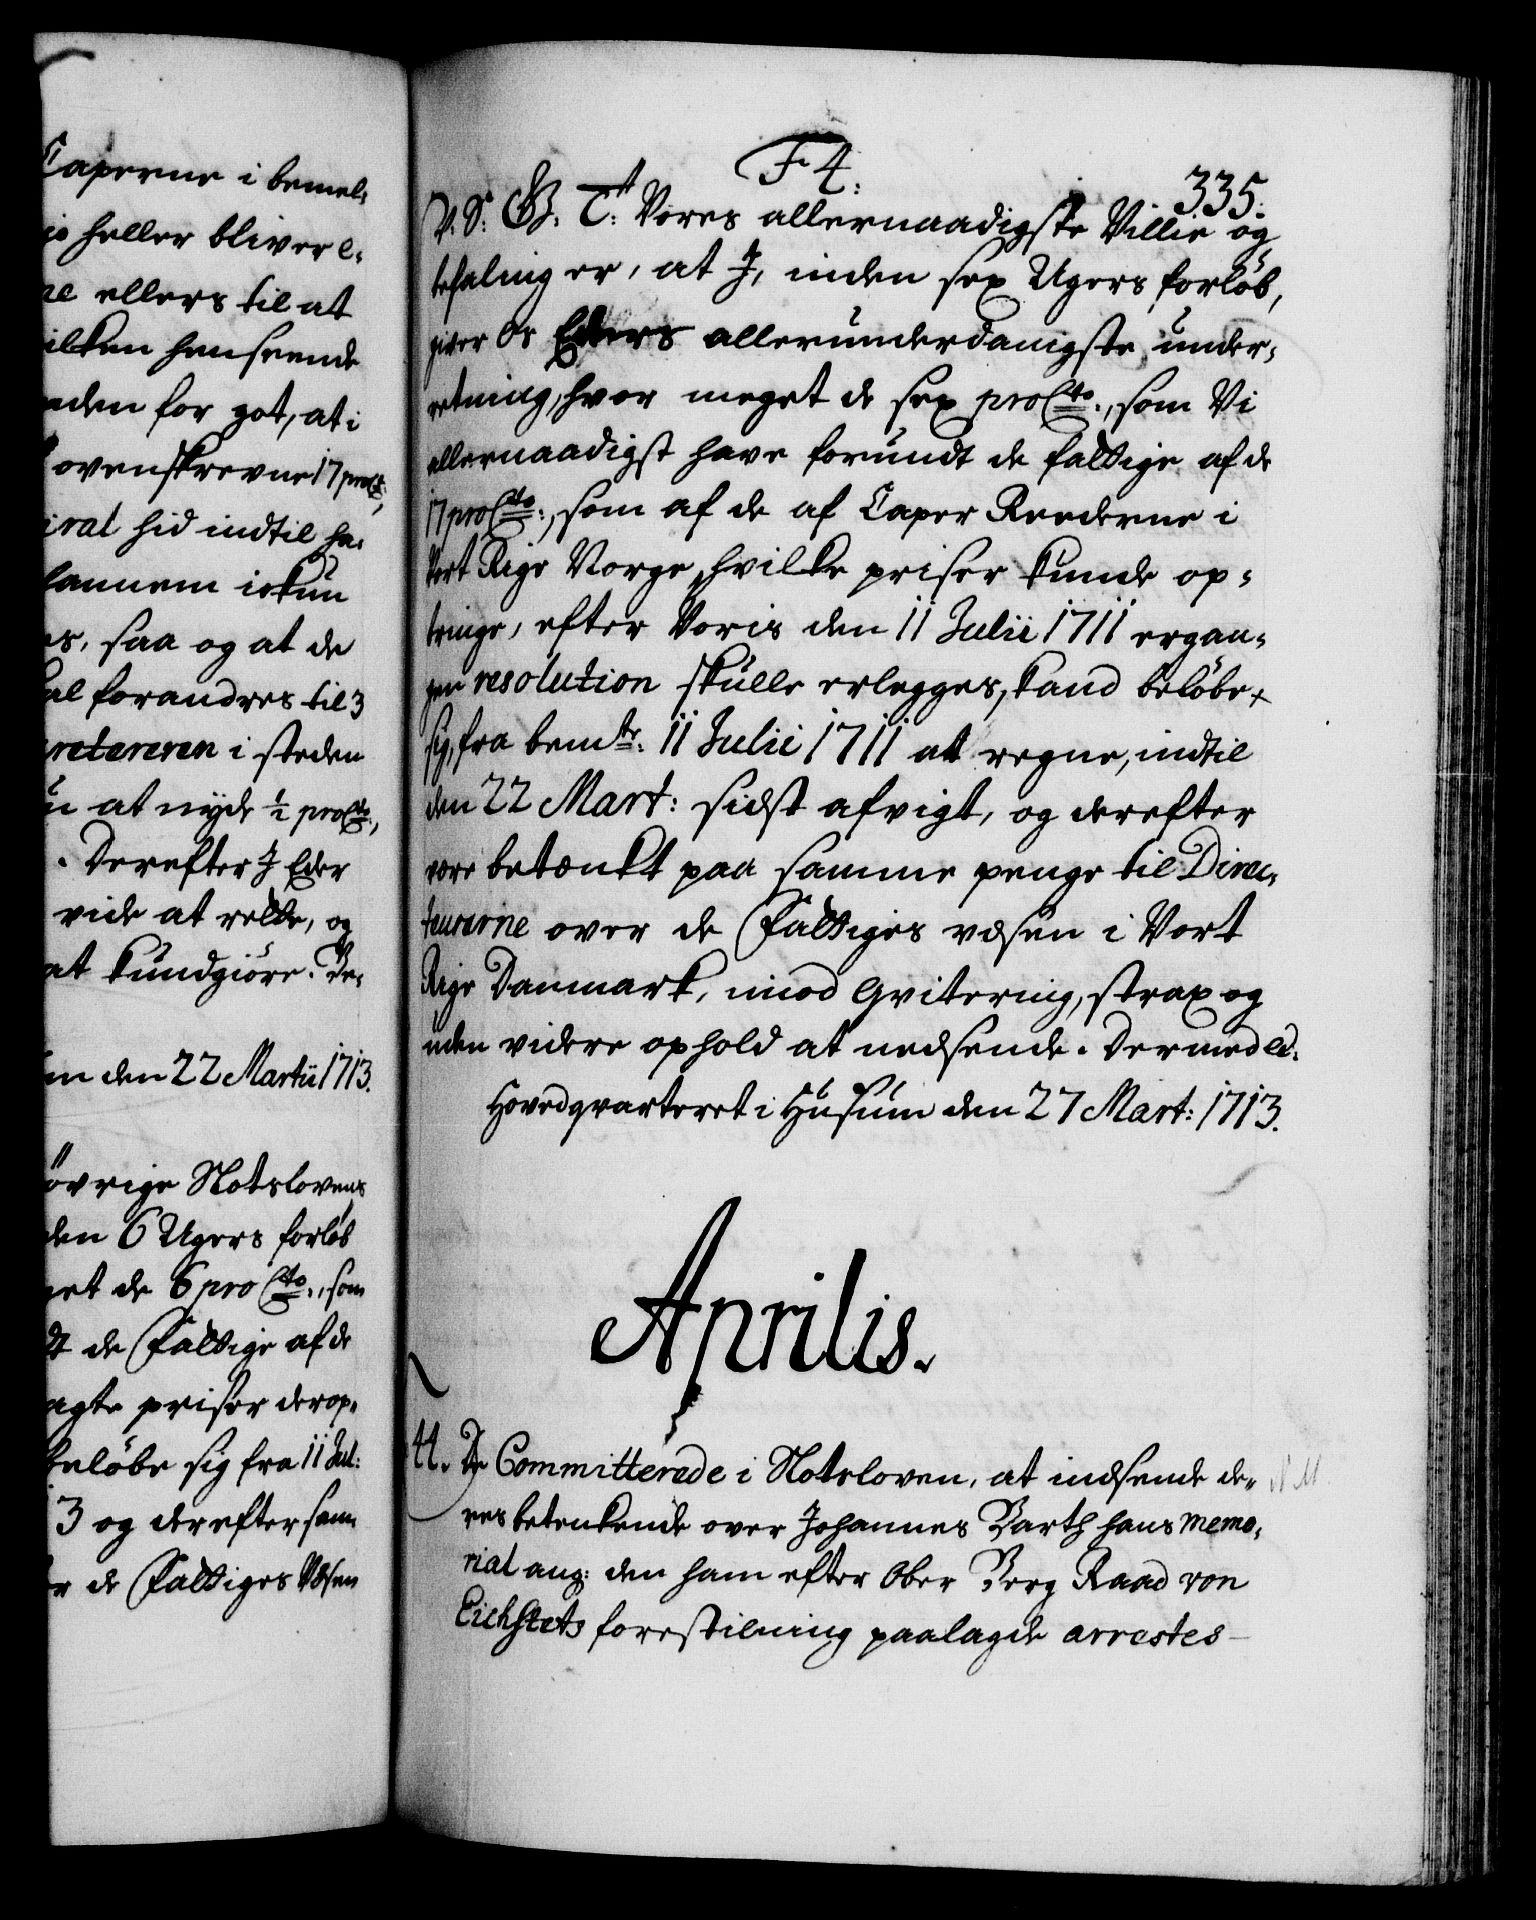 Caperne i bemel-
heller bliver e-
ellers til at
hvilken henseende
for got, at i
ovenskrevne 17 proCto,
hid indtil ha-
lannem ickun
saa og at de
forandres til 3
Secretereren i steden
at nyde ½ proCto,
. Derefter J Eder
vide at rette, og
at kundgiøre. De-
den 22 Martii 1713.
øvrige Slotslovens
inden 6 Ugers forløb
meget de 6 pro Cto, som
de Fattige af de
priser derop-
beløbe sig fra 11 Jul:
og derefter sam-
de Fattiges Væsen
F 4.
335.
V. S: G. T: Vores allernaadigste Villie og
befaling er, at J, inden sex Ugers forløb,
giver Os Eders allerunderdanigste under-
retning, hvor meget de sex proCto, som Vi
allernaadigst have forundt de fattige af de
17 proCto, som af de af Caper Reederne i
Vort Rige Norge, hvilke priser kunde op-
bringe, efter Voris den 11 Julii 1711 ergan-
gen resolution skulle erlegges, kand beløbe
sig, fra bemte: 11 Julii 1711 at regne, indtil
den 22 Mart: sidst afvigt, og derefter
være betænkt paa samme penge til Direc-
teurerne over de Fattiges væsen i Vort
Rige Danmark, imod Qvitering, strax og
uden videre ophold at nedsende. Dermed &.
Hovedqvarteret i Husum den 27 Mart: 1713.
Aprilis.
44. De Committerede i Slotsloven, at indsende de-
res betenkende over Johannes Barth hans memo-
rial ang: den ham efter Ober Berg Raad von
Eichstets forestilning paalagde arrestes